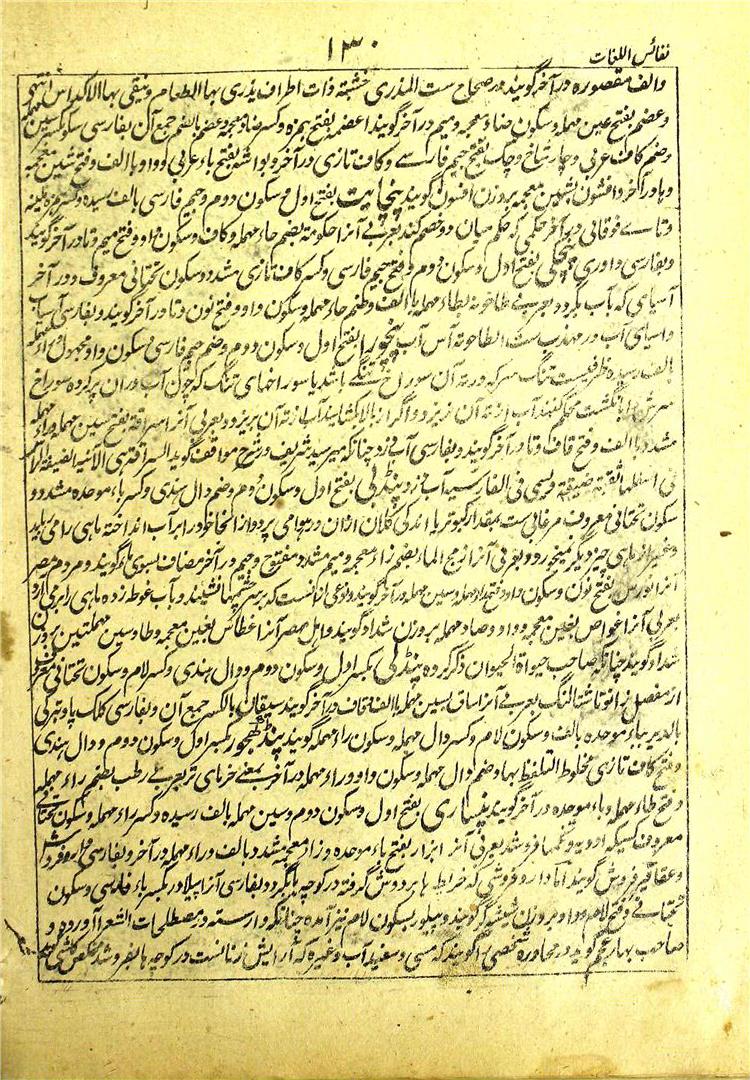 نفائس اللغات
۱۳۰
والف مقصوره در آخر گویند در صحاح ست المذری خشبة ذات اطراف یذری بها الطعام و ینقی بها الاکداس انتهی
وعضم بفتح عین مهمله و سکون ضاد معجمه و میم در آخر گویند اعضمه بفتح همزه و کسر ضاد معجمه و عضم بالضم جمع آن بفارسی سکو بکسر سین مهمله
وضم کاف عربی و چار شاخ و چک بفتح جیم فارسی و کاف تازی در آخر و بواشه بفتح باء عربی و واو با الف و فتح شین معجمه
وها در آخر و افشون بشین معجمه بر وزن افسون گویند پنچایت بفتح اول و سکون دوم و جیم فارسی بالف رسیده و کسر همزه ملینه
وتاے فوقانی در آخر حکمی که حکم میان دو خصم کند بعربی آنرا حکومة بضم حاء مهمله و کاف و سکون واو و فتح میم و تا در آخر گویند
وبفارسی داوری پنچکی بفتح اول و سکون دوم و فتح جیم فارسی و کسر کاف تازی مشدد و سکون تحتانی معروف در آخر
آسیای که بآب گردد بعربی طاحونه بطاء مهمله با الف و ضم حاء مهمله و سکون واو و فتح نون و تا در آخر گویند و بفارسی آسیاب
واسیای آب در مهذب ست الطاحونة آس آب پنچورا بفتح اول و سکون دوم و ضم جیم فارسی و سکون واو مجهول وراء مهمله
بالف رسیده ظرفیست تنگ سر که در ته آن سوراخ تنگے باشد یا سوراخهای تنگ که چون آب دران پر کرده سوراخ
سرش را بانگشت محکم کنند آب از ته آن نریزد و اگر از بالا کشایند آب از ته آن بریزد و بعربی آنرا سراقة بفتح سین مهمله وراء مهمله
مشدد با الف و فتح قاف و تا در آخر گویند و بفارسی آب دزد چنانکه میر سید شریف در شرح مواقف گوید السراقة هی الآنیة الضیقة الراس
فی اسفلها ثقبة ضیقة و یسمی فی الفارسیة آب دزد پنڈبی بفتح اول و سکون دوم و ضم دال هندی و کسر باء موحده مشدد و
سکون تحتانی معروف مرغابی ست بمقدار کبوتر یا اندکی کلان ازان در هوا می پرد و از انجا خود را بر آب انداخته ماهی را می رباید
وغیر از ماهی چیز دیگر نمیخورد و بعربی آنرا زمج الماء بضم زاء معجمه و میم مشدد مفتوح و جیم در آخر مضاف بسوی ما گویند و مردم مصر
آنرا نورس بفتح نون و سکون واو و فتح راء مهمله و سین مهمله در آخر گویند و نوعی ازانست که بر سر درختها نشیند و بآب غوطه زده ماهی را برمی آرد
بعربی آنرا غواص بغین معجمه و واو و صاد مهمله بر وزن شداد گویند و اهل مصر آنرا غطاس بغین معجمه و طا و سین مهملتین بر وزن
شداد گویند چنانکه صاحب حیوة الحیوان ذکر کرده پنڈلی بکسر اول و سکون دوم و دال هندی و کسر لام و سکون تحتانی معروف
از مفصل زانو تا شتالنگ بعربی آنرا ساق بسین مهمله با الف و قاف در آخر گویند سیقان بالکسر جمع آن و بفارسی کلک پا و بترکی
بالدیر بباء موحده بالف و سکون لام و کسر دال مهمله و سکون راء مهمله گویند پنڈکھجور بکسر اول و سکون دوم و دال هندی
وفتح کاف تازی مخلوط التلفظ بها و ضم دال مهمله و سکون واو و راء مهمله در آخر بمعنے خرمای تر بعربی رطب بضم راء مهمله
وفتح طاء مهمله و باء موحده در آخر گویند پنساری بفتح اول و سکون دوم و سین مهمله بالف رسیده و کسر راء مهمله و سکون تحتانی
معروف کسیکه ادویه و تخمها فروشد بعربی آنرا ابزار بفتح باء موحده و زاء معجمه مشدد بالف و راء مهمله در آخر و بفارسی دارو فروش
وعقاقیر فروش گویند اما دارو فروشی که خراطها بر دوش گرفته در کوچه ها بگردد و بفارسی آنرا پیلاور بکسر باء فارسی و سکون
تحتانی و فتح لام و واو بر وزن شیشه گر گویند و پیلور بسکون لام نیز آمده چنانکه وارسته در مصطلحات الشعرا آورده و
صاحب بهار عجم گوید در محاوره شخصی را گویند که مسی و سفیداب وغیره که آرایش زنانست در کوچه ها بفروشد مخلص کاشی گوید